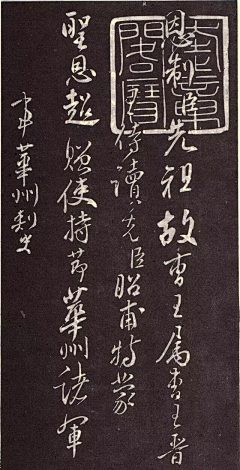 恩制臣先祖故曹王屬曹王晉
王侍讀先臣昭甫特蒙
聖恩超贈使持節華州諸軍
事華州刺史